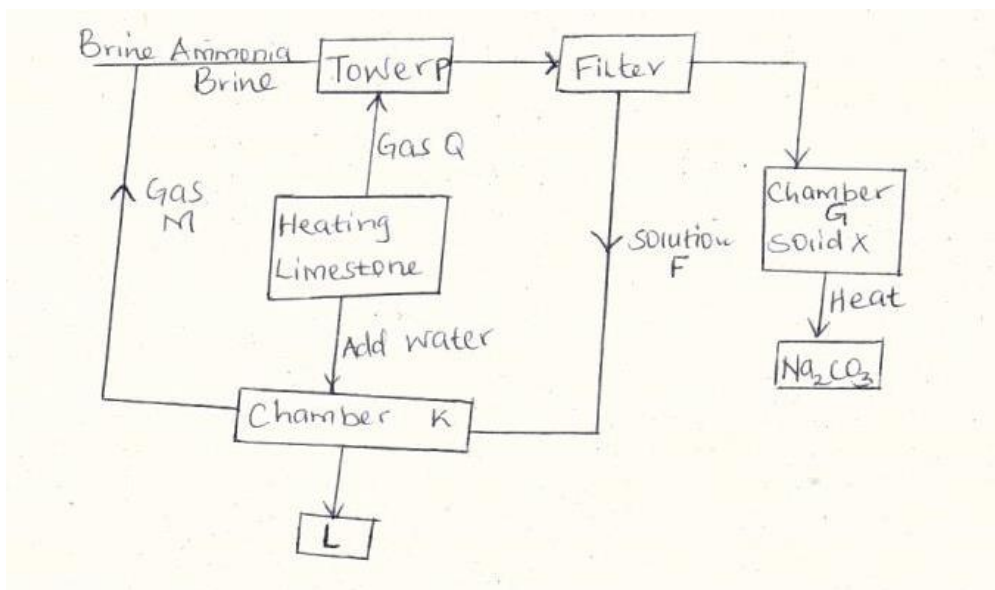 Brine Ammonia
Brine
Tower P
Filter
Gas Q
Gas
M
Heating
Limestone
solution
F
Chamber
G
Solid X
Heat
Add water
Na₂CO₃
Chamber K
L